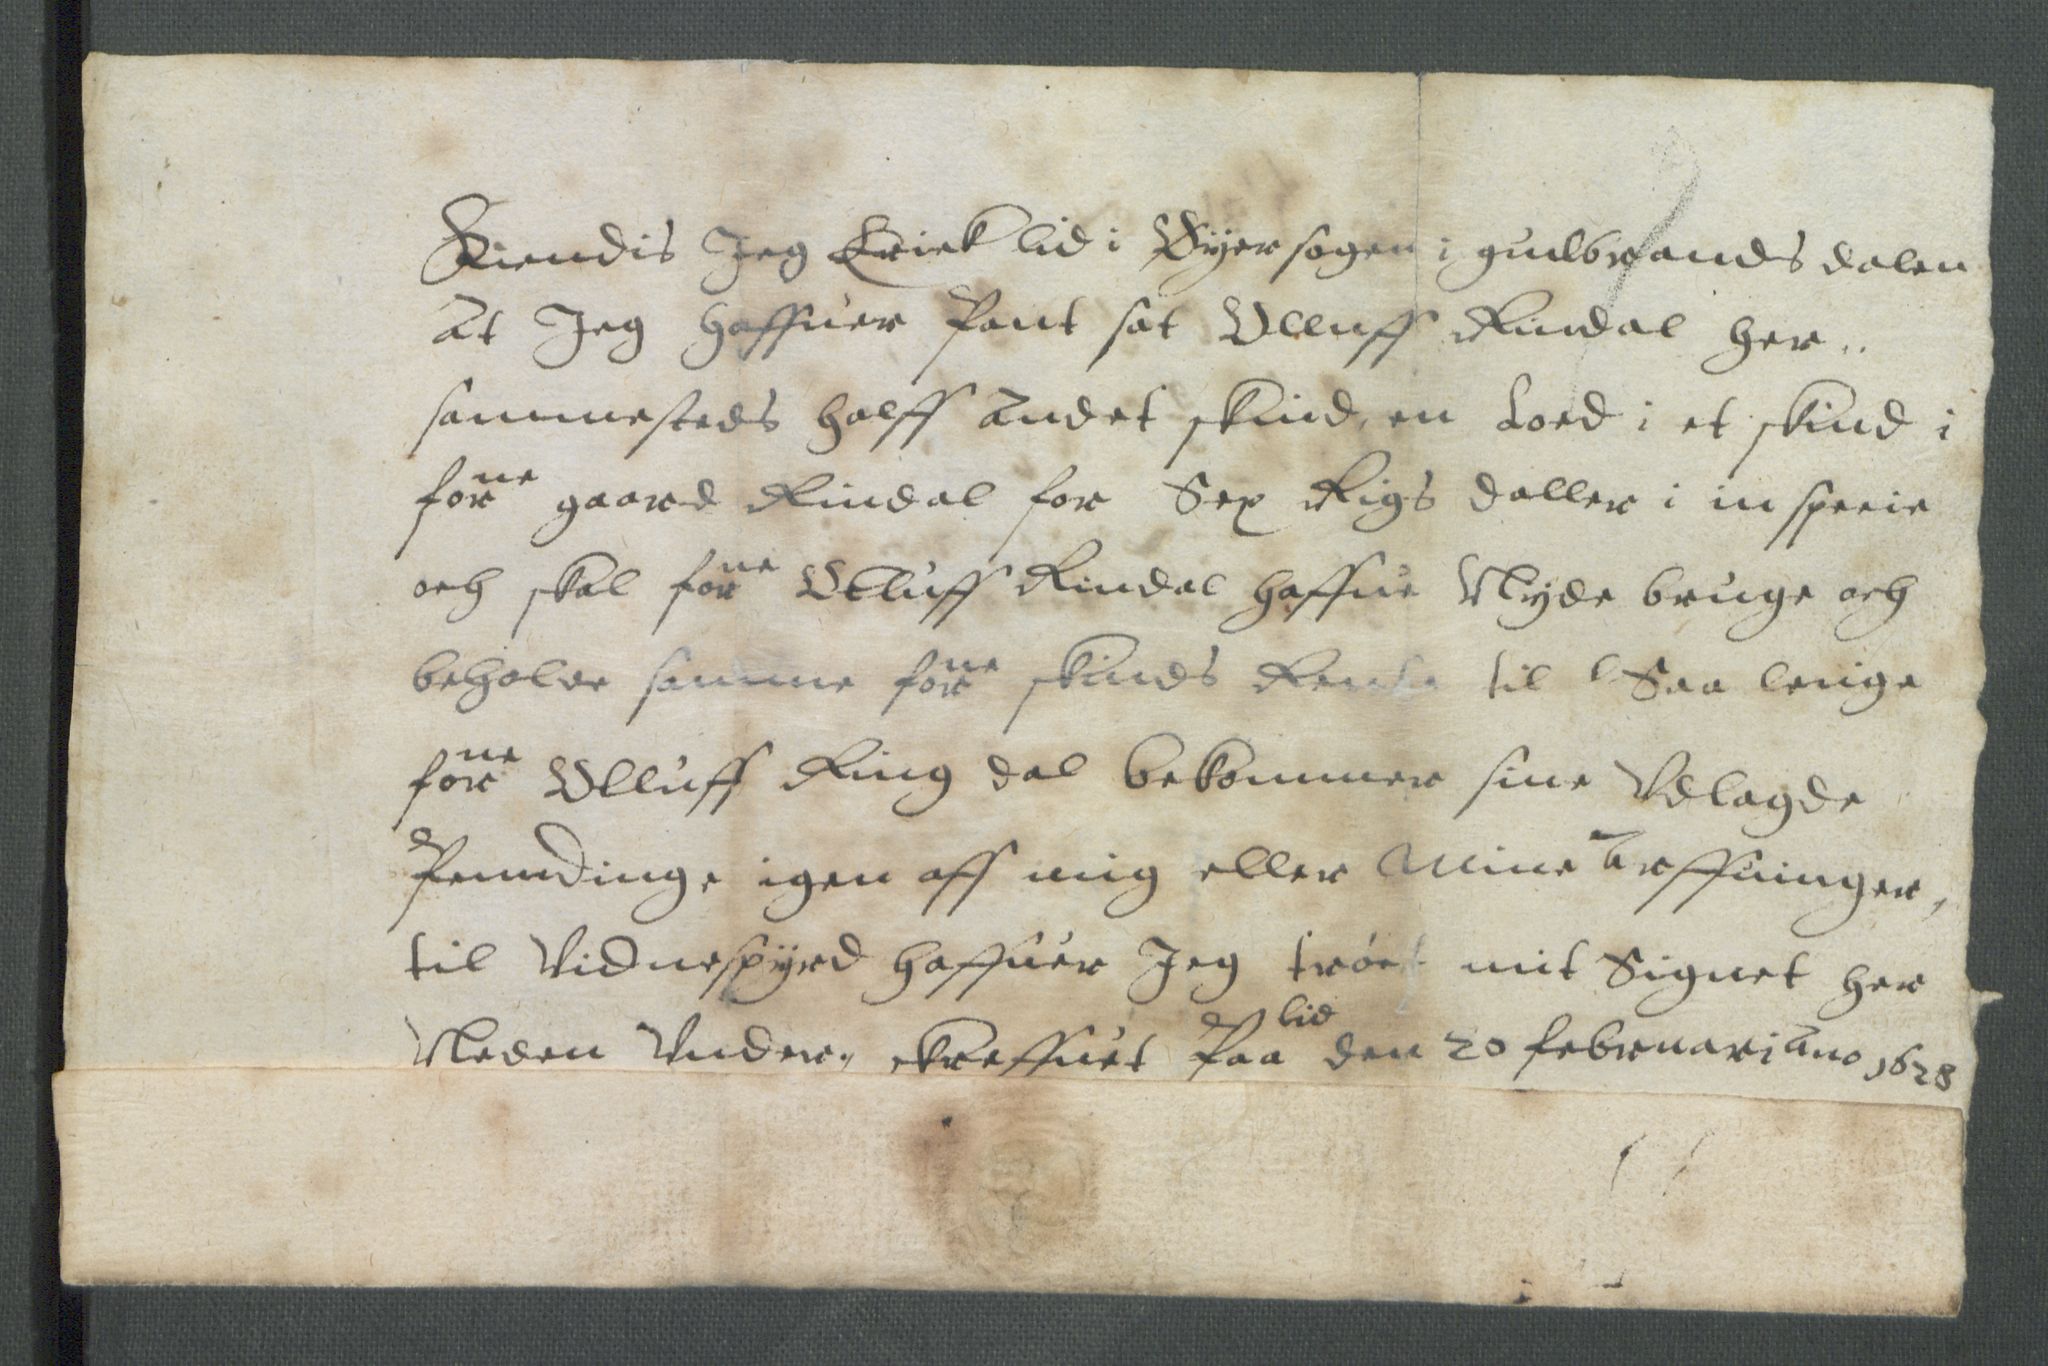 Kiendis Jeg Eriek lid i Øÿer sogen i gudbrands dalen
At Jeg Haffuer Pant sat Olluff Rindal her..
sammesteds halff Andet skind, en Loed i et skind i
forne gaard Rindal for Sex Rigs daller i in specie
och skal forne Olluff Rindal haffue Nÿde bruge och
beholde samme forne skinds Rente til Saa lenge
forne Olluff Ring dal bekommer sine Vdlagde
Penndinge igen aff mig eller Mine Arffuinger,
til Vidnespÿrd haffuer Jeg tröct mit Signet her
Neden Vnder, skreffuet Paa lid den 20 februari Ano 1628